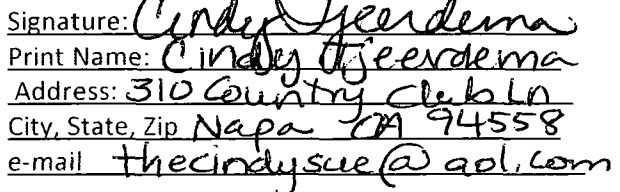 Signature: Cindy Tjeerdema
Print Name: Cindy Tjeerdema
Address: 310 Country Club Ln
City, State, Zip Napa CA 94558
e-mail thecindysue@aol.com